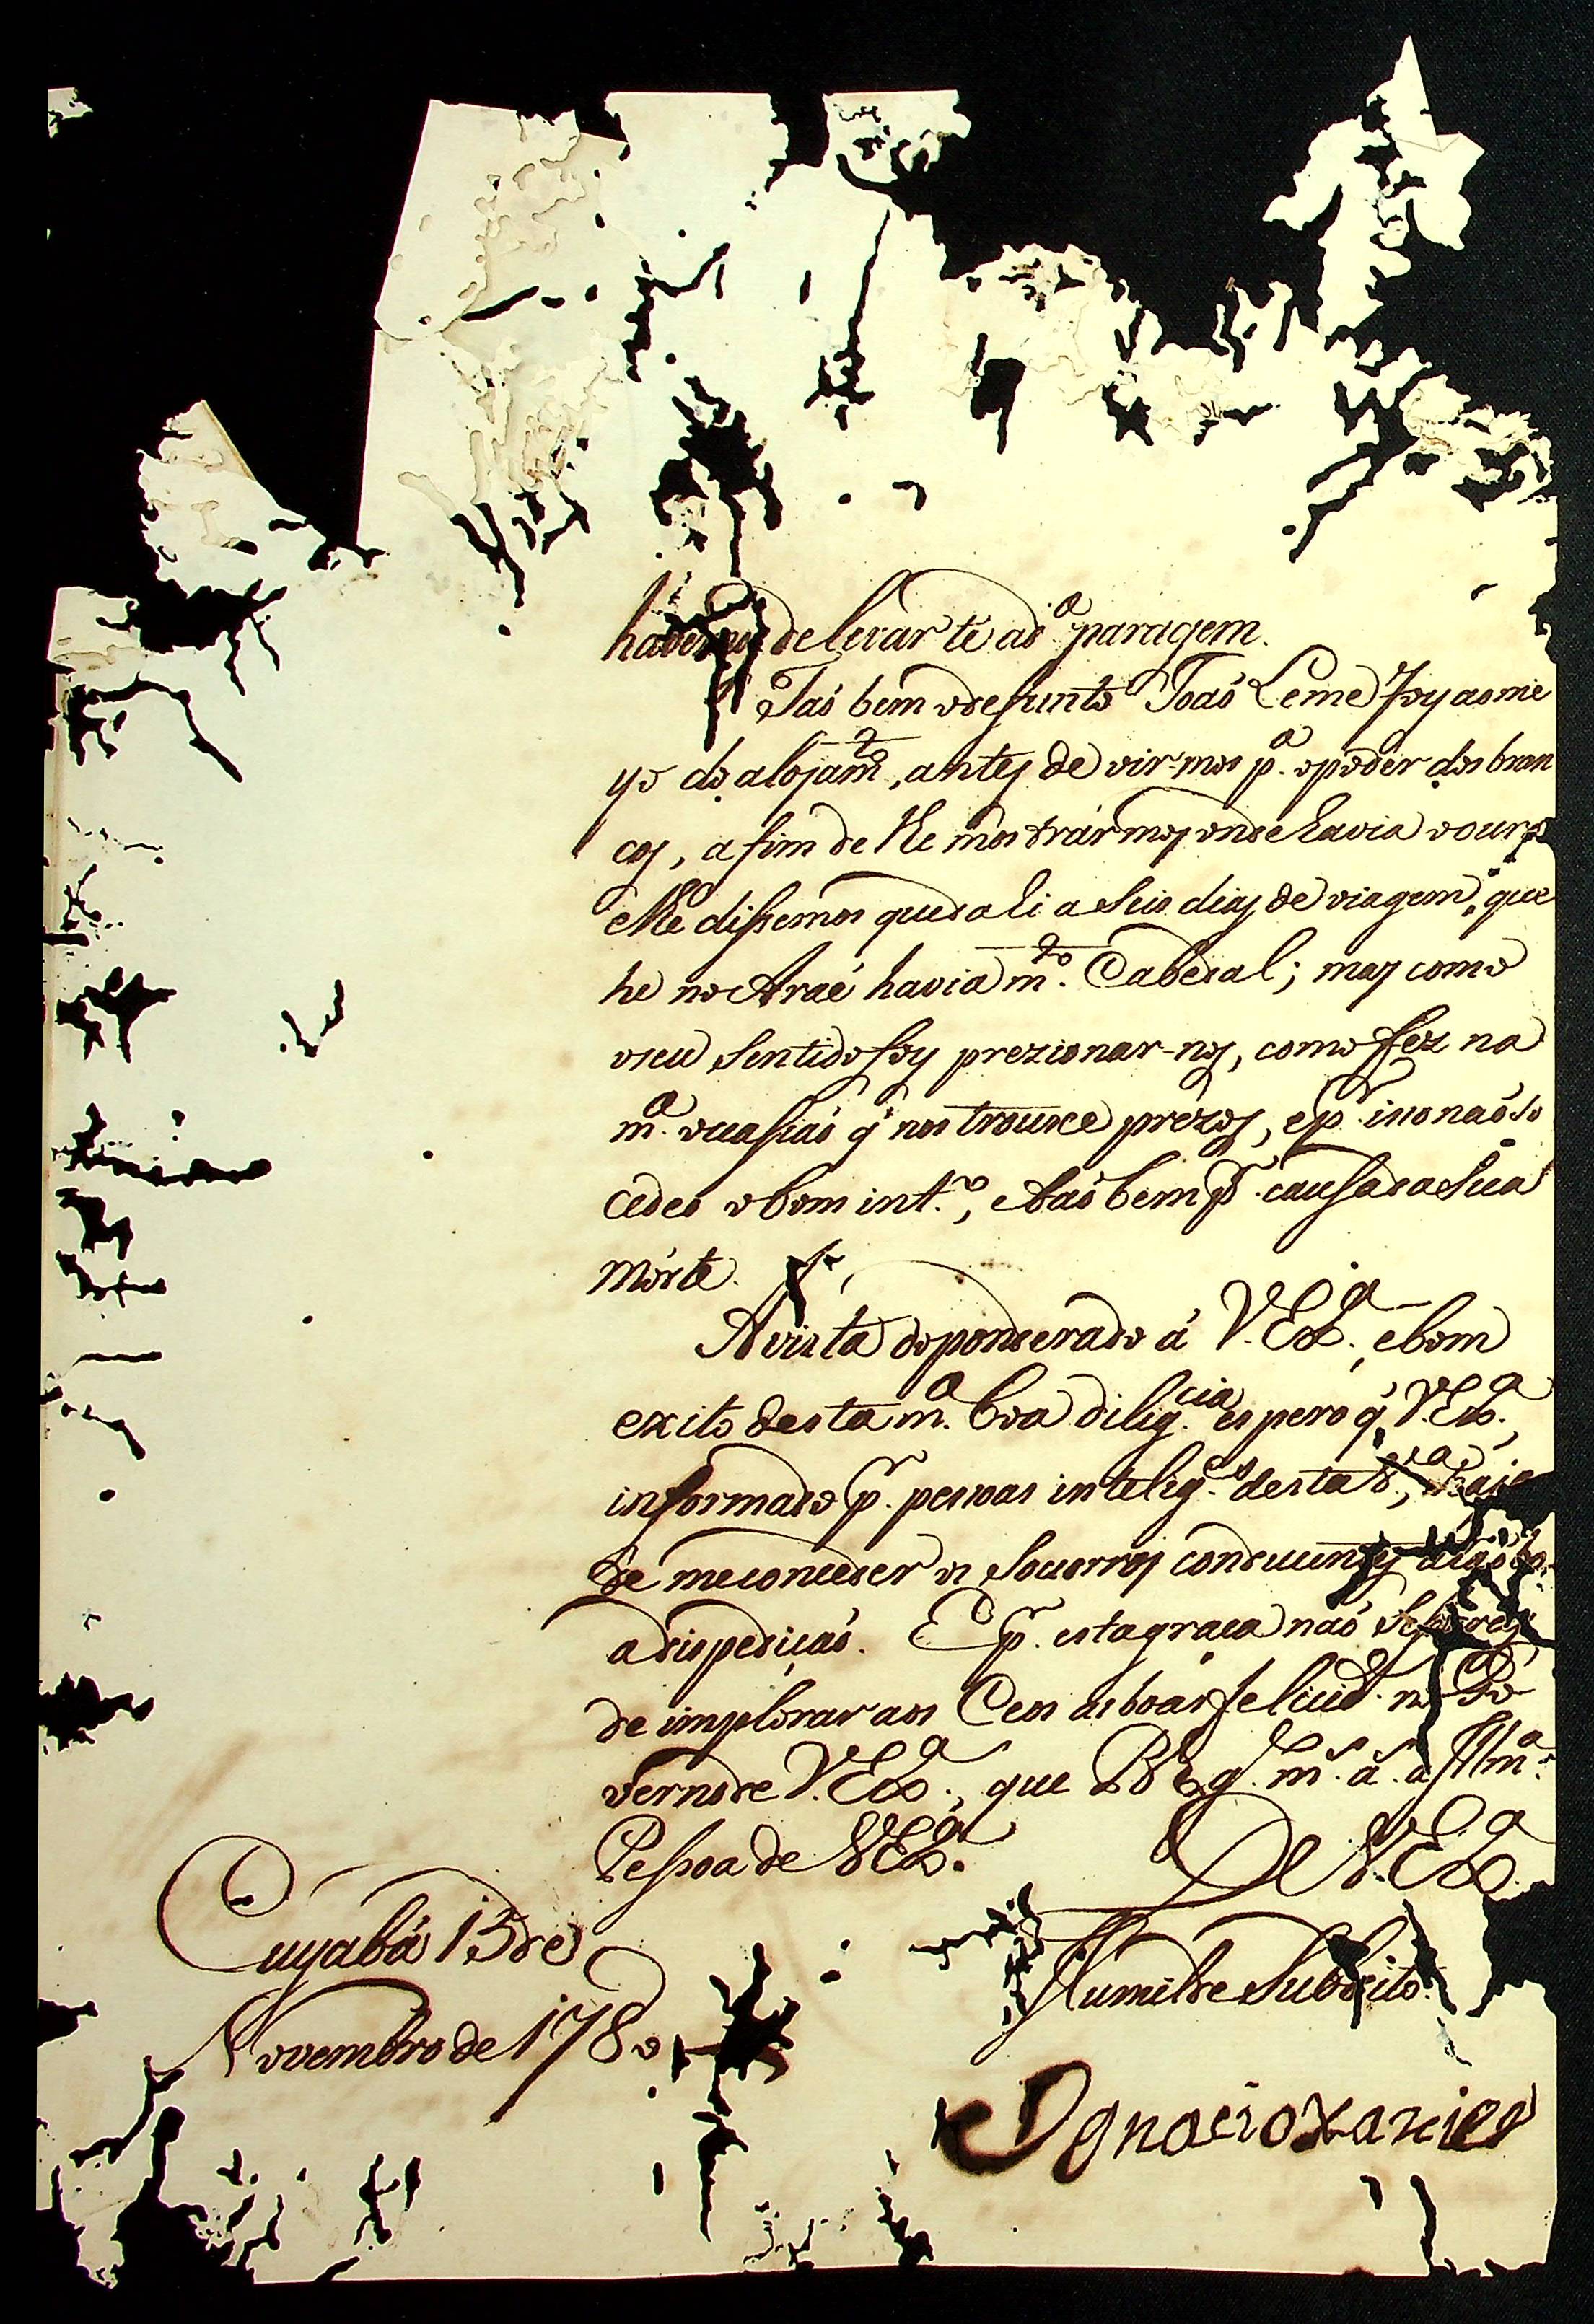 havemos de levar té a d.ª paragem.
Taõ bem o defunto Joaõ Leme foy ao me
yo do alojam.to, antes de vir-mos p.ª o poder dos bran
cos, a fim de lhe mostrármos onde havia o ouro
e lhe dissemos que dali a seis dias de viagem, que
he no Araé havia m.to Cabedal; mas como
o seu sentido foy prezionar-nos, como fez na
m.ª occasiaõ q̃ nos trouxe prezos, e p.r isso naõ so
cedeo o bom int.º, e taõ bem p.r causa da sua
mórte.
A vista do ponderado á V. Ex.ª, e bom
exito desta m.ª boa dilig.cia espero q̃ V. Ex.ª,
informado p.r pessoas intelig.es desta V.ª, haja
de me conceder os socorros conducentes
a dispediçaõ. E p.r esta graça naõ
de implorar aos Ceos as boas felicid.es no Go
verno de V. Ex.ª, que D.s g.e m.s a.s a Ill.mª
Pessoa de V. Ex.ª
De V. Ex.ª
Cuyabá 15 de
Humilde Subdito
Novembro de 1780
Ignacio Xavier